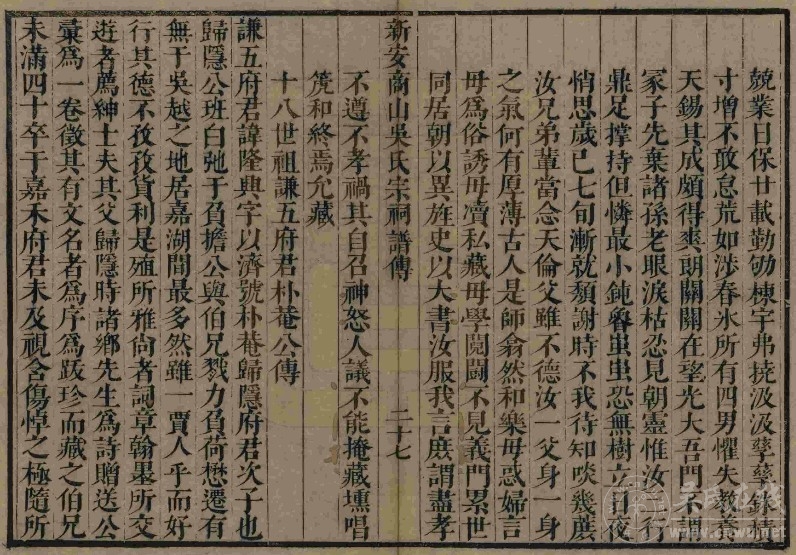 兢業日保廿載勤劬棟宇弗撓汲汲孳孳銖積
寸增不敢怠荒如涉春氷所有四男懼失教養
天錫其成頗得爽朗關關在望光大吾門不謂
冢子先棄諸孫老眼淚枯忍見朝靈惟汝二行
鼎足撐持但憐最小鈍魯虽虽恐無樹立日夜
悄思歲已七旬漸就頹謝時不我待知啖幾蔗
汝兄弟輩當念天倫父雖不德汝一父身一身
之氣何有厚薄古人是師翕然和樂毋惑婦言
毋為俗誘毋瀆私藏毋學鬩鬩不見義門累世
同居朝以異旌史以大書汝服我言庶謂盡孝
新安商山吳氏宗祠譜傳
二十七
不遵不孝禍其自召神怒人議不能掩藏壎唱
箎和終焉允藏
十八世祖謙五府君朴菴公傳
謙五府君諱隆興字以濟號朴菴歸隱府君次子也
歸隱公班白弛于負擔公與伯兄戮力負荷懋遷有
無于吳越之地居嘉湖間最多然雖一賈人乎而好
行其德不孜孜貨利是殖所雅尚者詞章翰墨所交
遊者薦紳士夫其父歸隱時諸鄉先生為詩贈送公
彙為一卷徵其有文名者為序為跋珍而藏之伯兄
未滿四十卒于嘉禾府君未及視含傷悼之極隨所